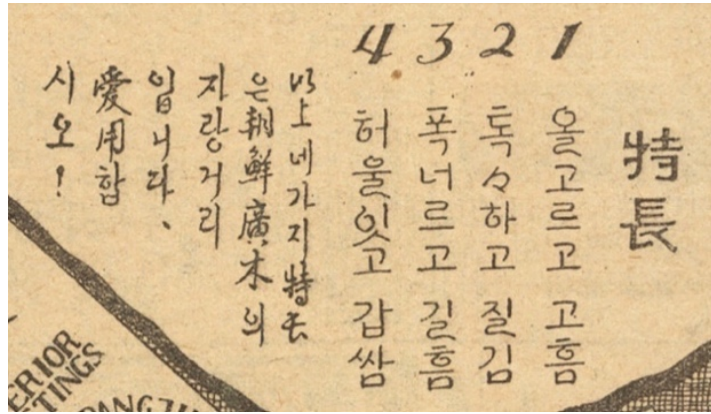 特長
1 올고르고 고흠
2 톡々하고 질김
3 폭너르고 길흠
4 허울잇고 갑쌈
以上네가지特長
은朝鮮廣木의
자랑거리
입니다、
愛用합
시오!
ERIOR
TINGS